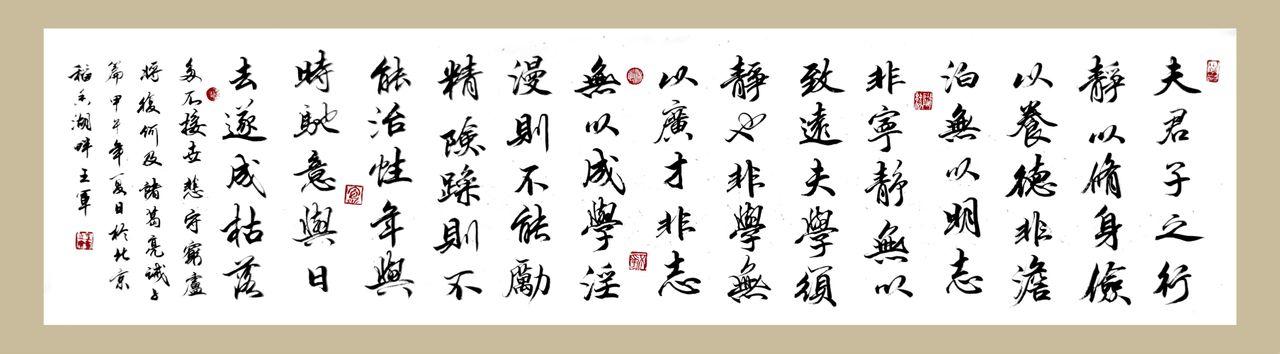 夫君子之行
靜以脩身儉
以養德非澹
泊無以明志
非寧靜無以
致遠夫學須
靜也非學無
以廣才非志
無以成學淫
漫則不能勵
精險躁則不
能治性年與
時馳意與日
去遂成枯落
多不接世悲守窮廬
將復何及諸葛亮誡子
篇甲午年夏日於北京
稻香湖畔王軍